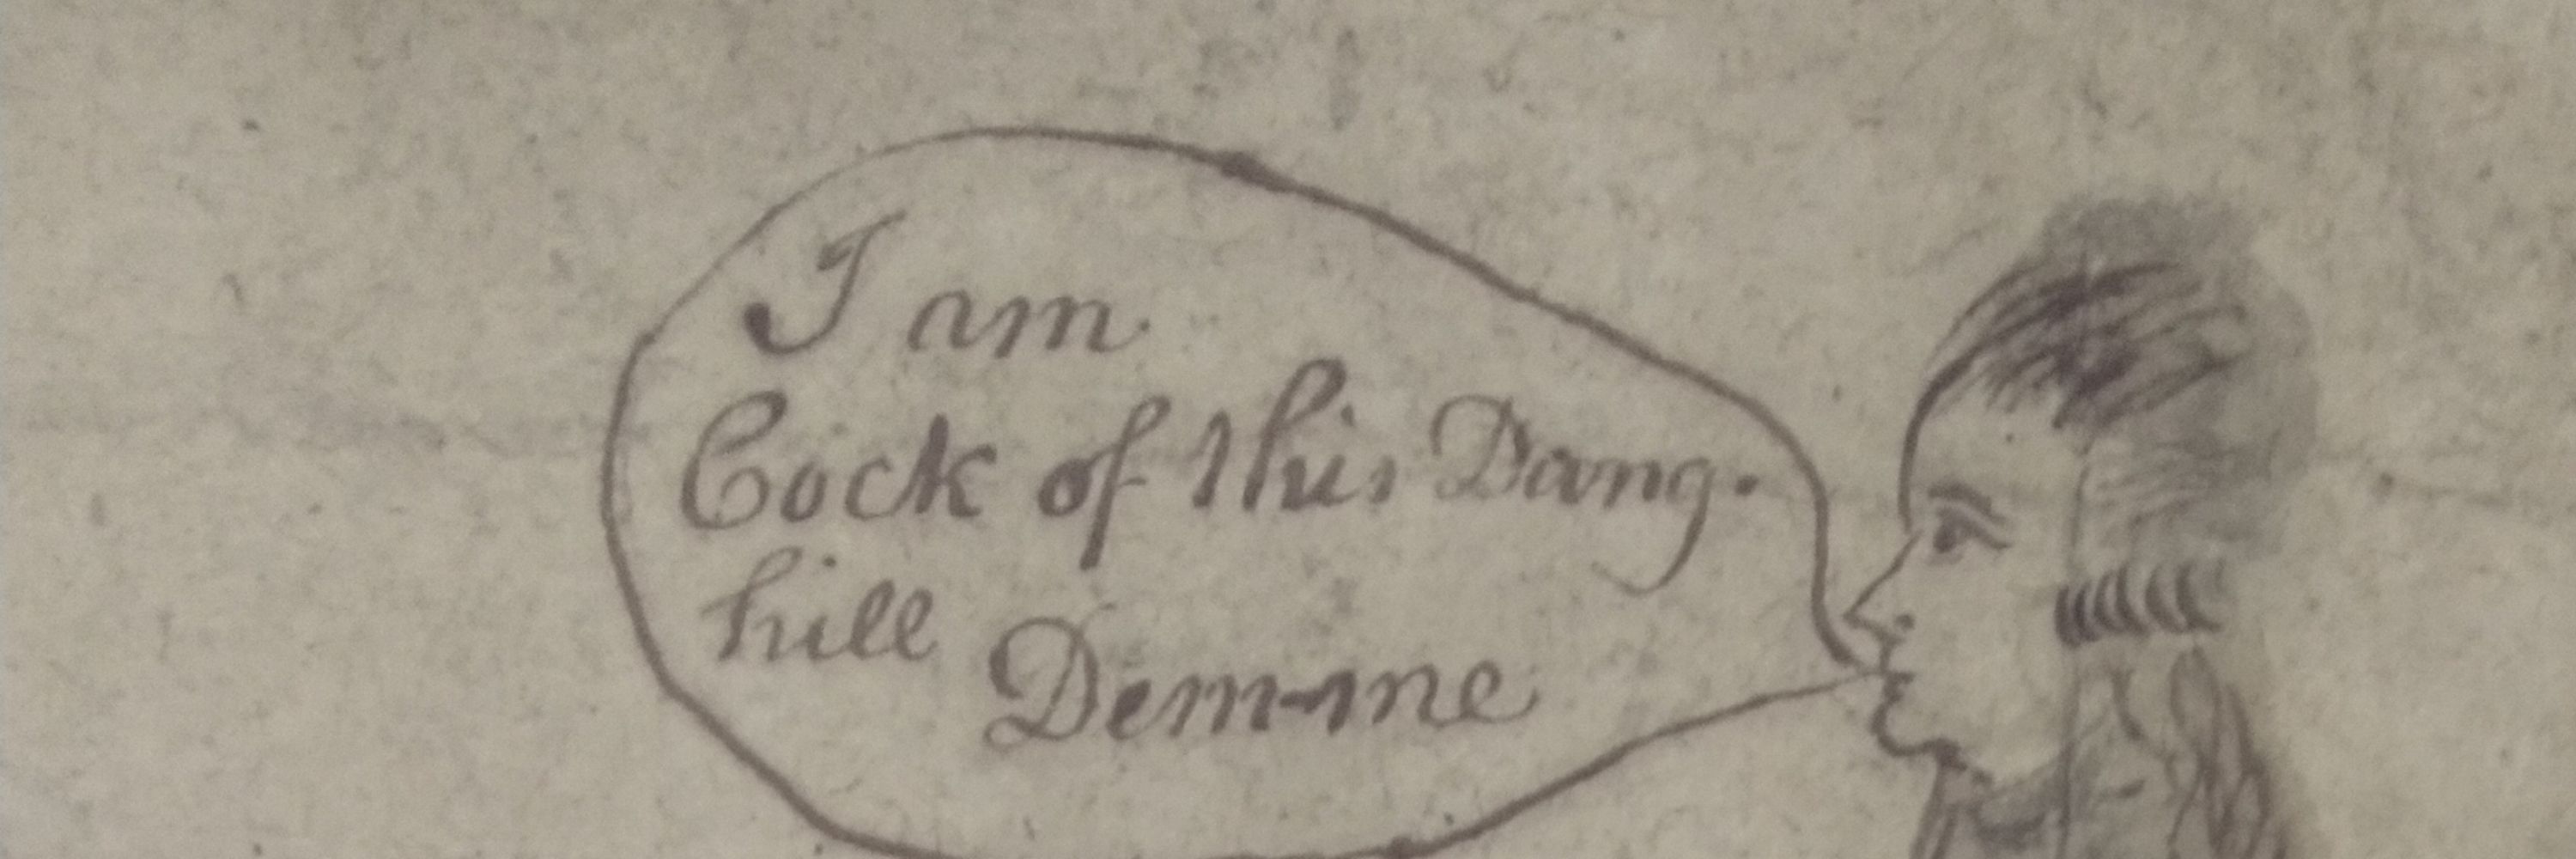 I am
Cock of this Dang.
hill
Dem-me